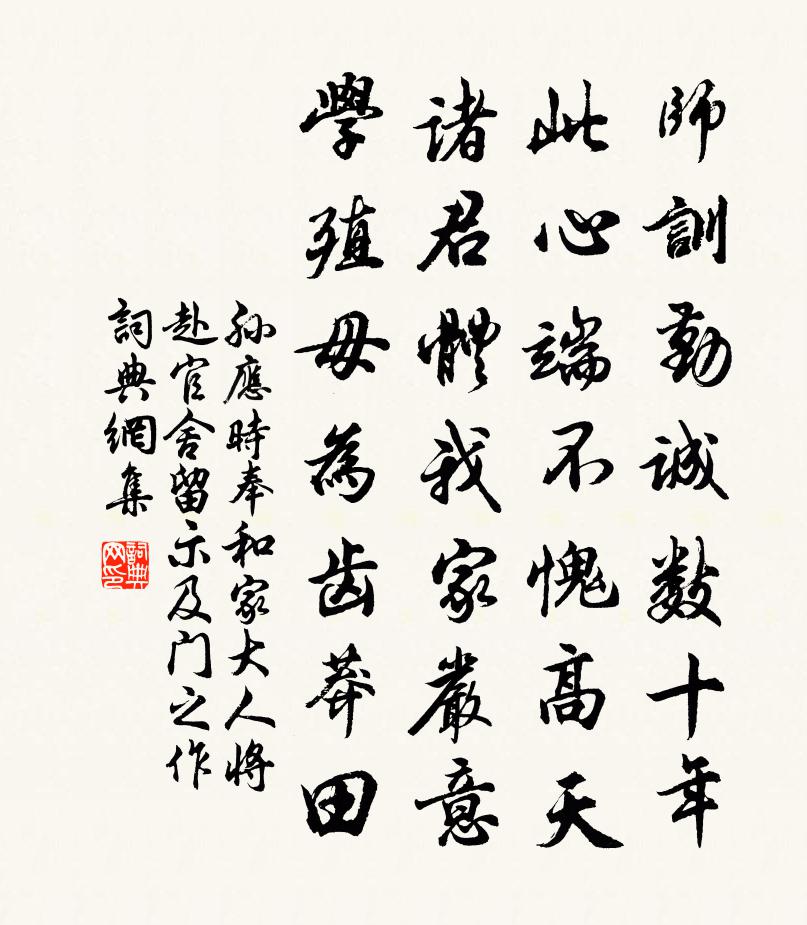 師訓勤誠数十年
此心端不愧高天
諸君體我家嚴意
學殖毋為鹵莽田
孙應時奉和家大人將
赴官舍留示及门之作
詞典網集
詞典网印